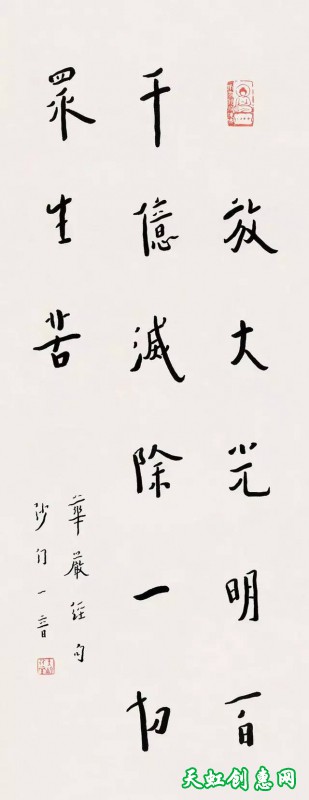 放大光明百
千億滅除一切
眾生苦
華嚴經句
沙門一音
天虹创意网